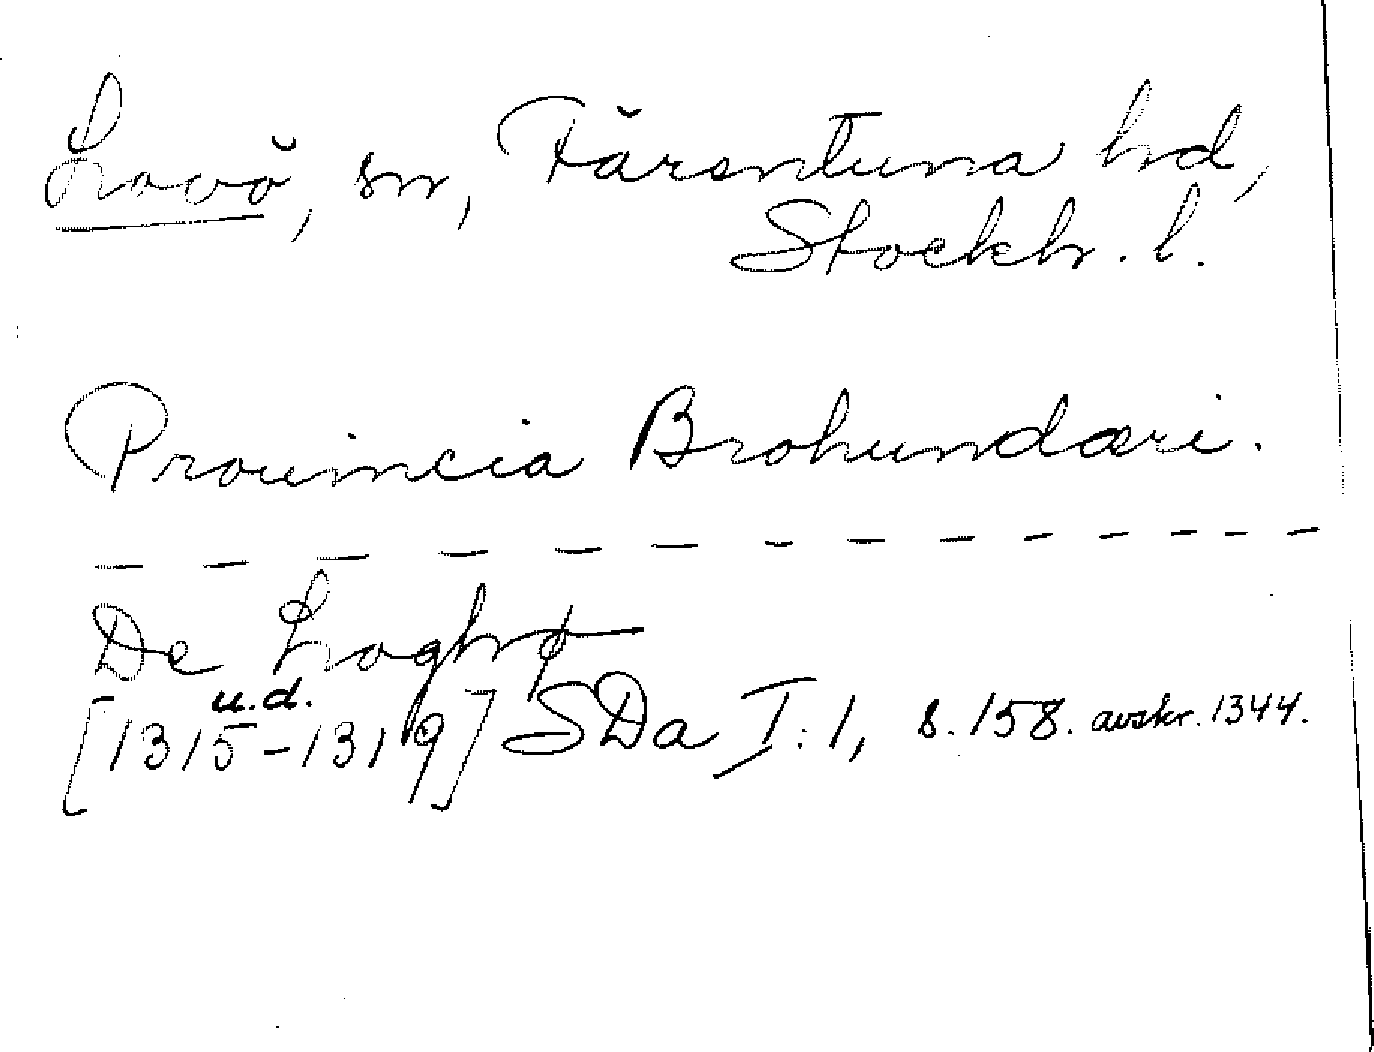 Lovö, sn, Färentuna hd,
Stockh. l.
Prouincia Brohundæri.
— — — — — — — — — — — —
De Loghø
u.d.
[1315-1319] SDa I:1, s. 158. avskr. 1344.